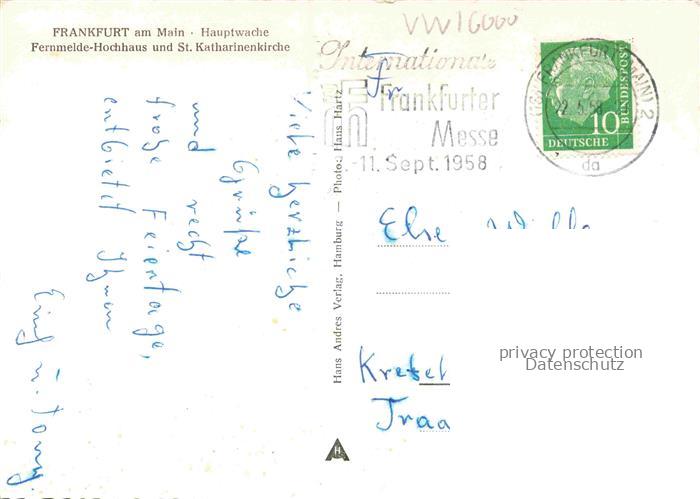 FRANKFURT am Main · Hauptwache
Fernmelde-Hochhaus und St. Katharinenkirche
VW16000
Internationale
Frankfurter
Messe
-11. Sept. 1958
2.5.58
da
10
DEUTSCHE
BUNDESPOST
Viele herzliche
Grüße
und recht
frohe Feiertage,
entbietet Ihnen
Hans Andres Verlag, Hamburg — Photo: Hans Hartz
Fr
Else
Kretel
Traa
privacy protection
Datenschutz
H